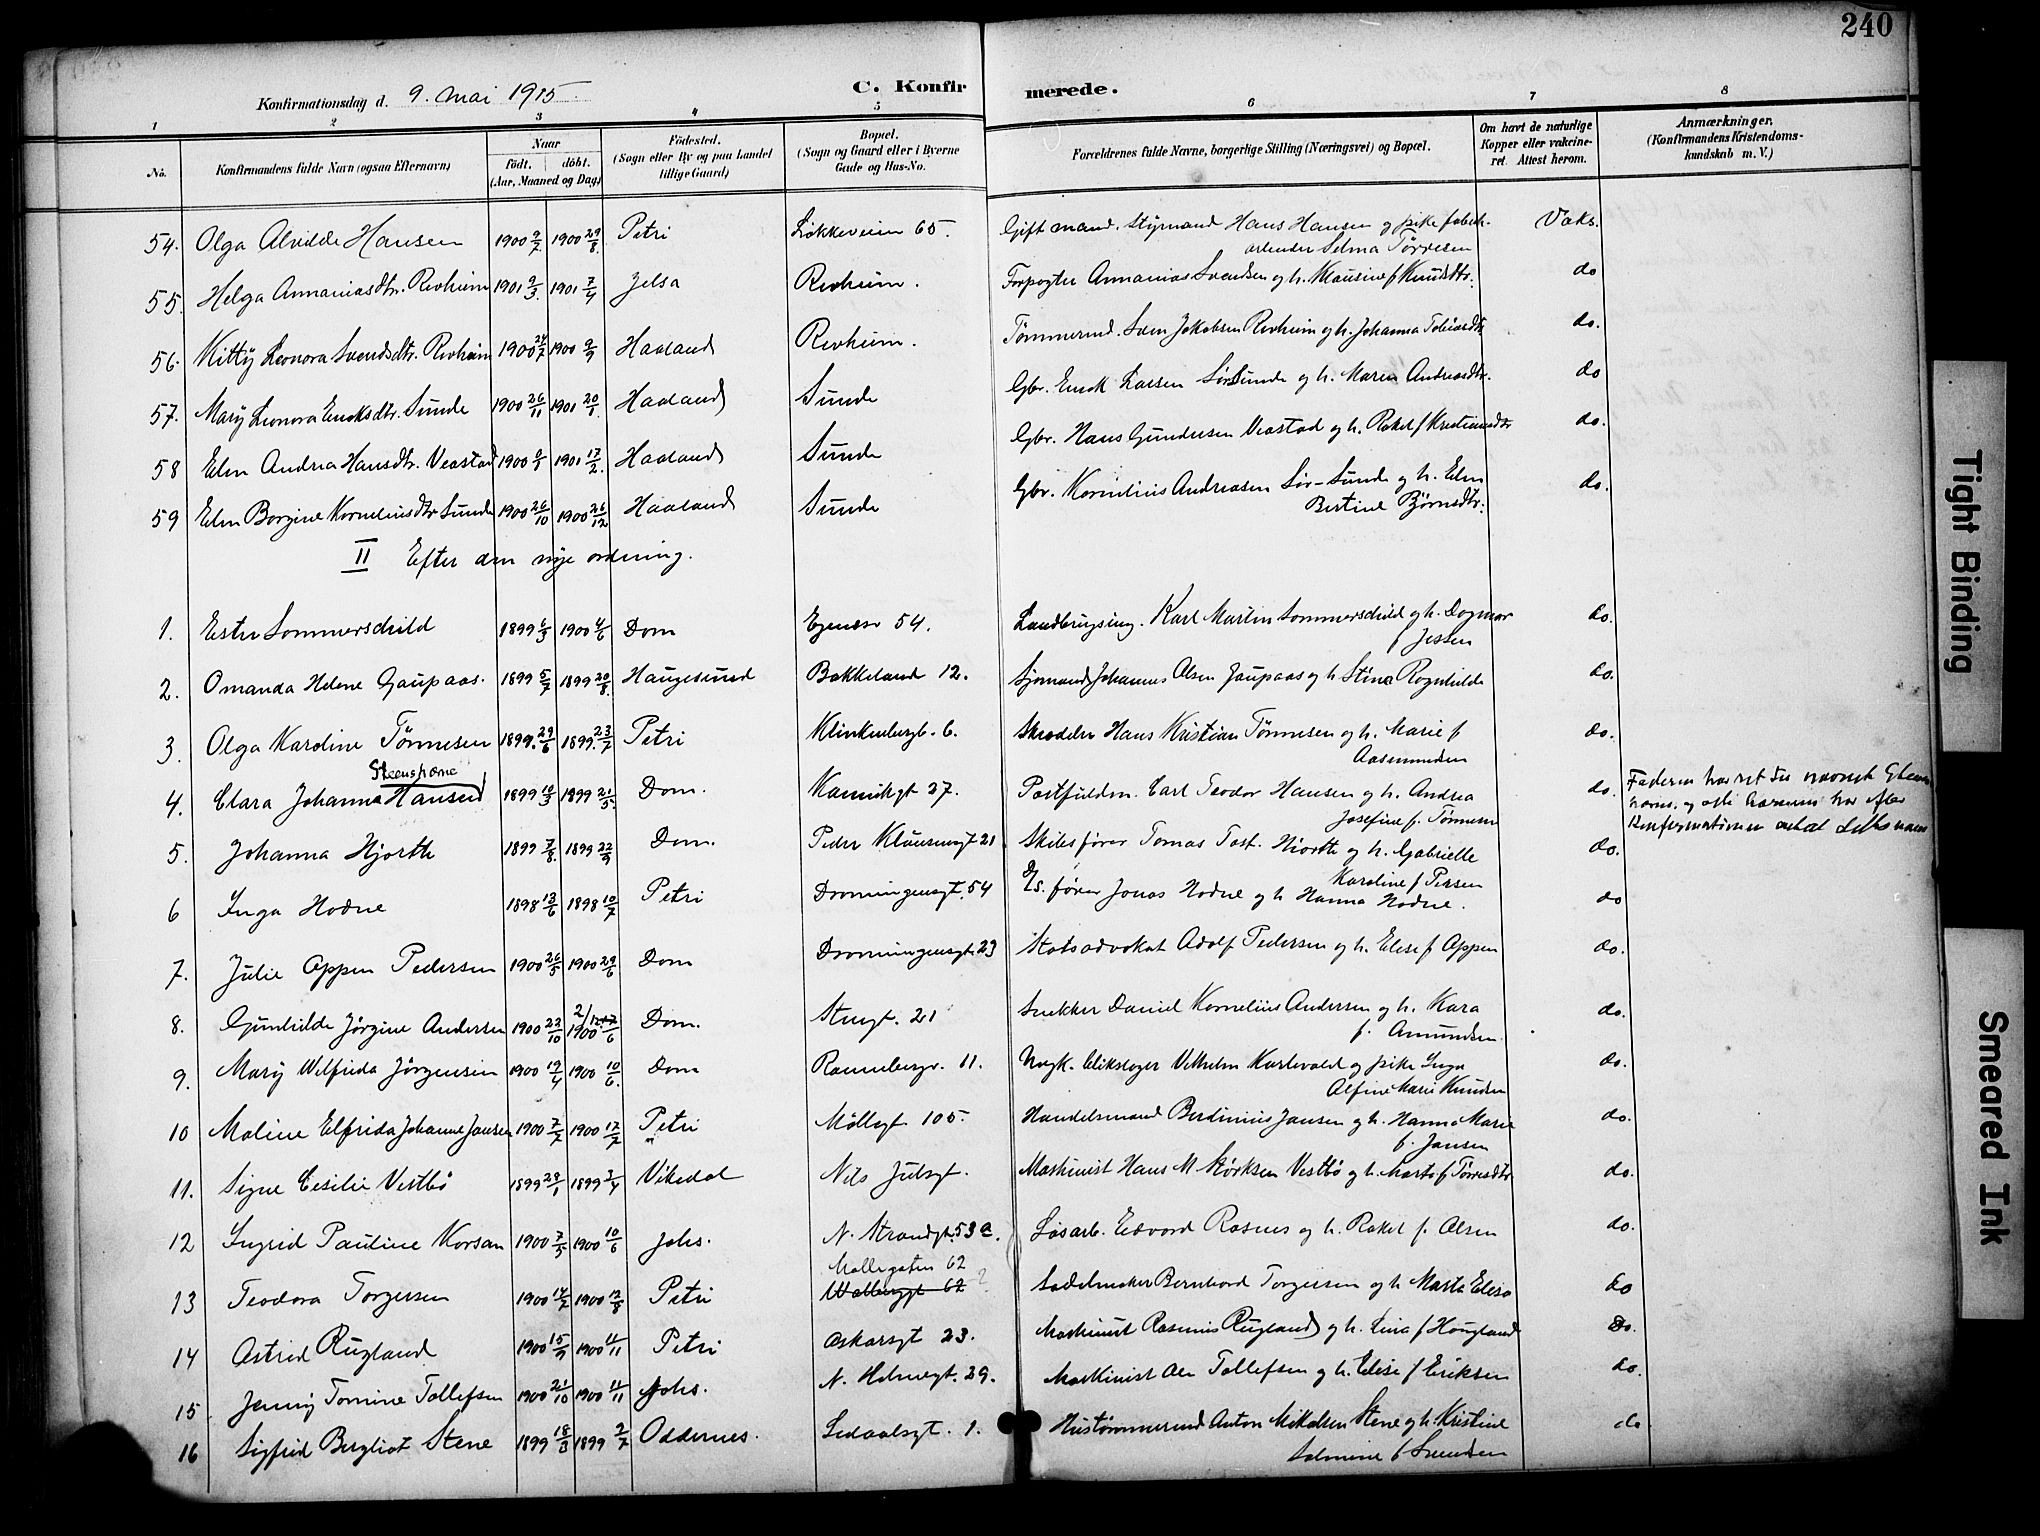 240
Konfirmationsdag d. 9. mai 1915
C. Konfirmerede.
1 2 3 4 5 6 7 8
No.
Konfirmandens fulde Navn (ogsaa Efternavn)
Naar
födt. döbt.
(Aar, Maaned og Dag)
Födested.
(Sogn eller By og paa Landet tillige Gaard)
Bopæl.
(Sogn og Gaard eller i Byerne Gade og Hus-No.
Forældrenes fulde Navne, borgerlige Stilling (Næringsvei) og Bopæl.
Om havt de naturlige Kopper eller vakcineret. Attest herom.
Anmærkninger.
(Konfirmandens Kristendomskundskab m. V.)
54. Olga Alvilde Hansen 1900 9/7 1900 29/8 Petri Løkkeveien 65. Gift mand. Styrmand Hans Hansen og pike fabrik-arbeider Selma Tørresen Vaks.
55. Helga Annaniasdtr. Revheim 1901 9/3 1901 7/4 Jelsa Revheim. Forpagter Annanias Svendsen og h. Klausine f Knudsdtr. do
56. Kitty Leonora Svendsdtr. Revheim 1900 24/7 1900 9/9 Haaland Revheim. Tømmermd. Sven Jakobsen Revheim og h. Johanna Tobiasdtr do.
57. Mary Leonora Enoksdtr. Sunde 1900 26/11 1901 20/1 Haaland Sunde Gbr. Enok Larsen Sør Sunde og h. Maren Andreasdtr. do
58 Elen Andrea Hansdtr. Veastad 1900 1901 17/2 Haaland Sunde Gbr. Hans Gundersen Veastad og h. Rakel f Kristiansdtr do.
59 Elen Borgine Korneliusdtr Sunde 1900 26/10 1900 26/12 Haaland Sunde Gbr. Kornelius Andreasen Sør-Sunde og h. Elen Bertine Bjørnsdtr. do.
II Efter den nye ordning.
1. Ester Sommerschild 1899 1900 4/6 Dom Egenesv 54. Landbrugsing. Karl Martin Sommerschild og h. Dagmar f Jessen do.
2. Omanda Helene Gaupaas. 1899 5/7 1899 20/8 Haugesund Bakkeland 12. Sjømand Johannes Olsen Gaupaas og h Stina Ragnhilde do.
3. Olga Karoline Tönnesen 1899. 29/6 1899. 23/7 Petri Klinkenbergt. 6. Skrædder Hans Kristian Tönnesen og h. Marie f Aasmundsen do.
4. Clara Johanna Hansen Steenshorne 1899 10/3 1899 21/5 Dom. Kannikgt 27. Postfuldm. Carl Teodor Hansen og h. Andrea Josefine f. Tönnesen do. Faderen har ret til navnet og har efter Konfirmationen dette navn
5. Johanna Hjorth 1899 7/8. 1899 22/9 Dom. Peder Klausensgt 21 Skibsfører Tomas Tost. Hiorth og h. Gabrielle Karoline f Persen do.
6 Inga Hodne 1898 13/6 1898 10/7 Petri Dronningensgt. 54 D/s. fører Jonas Hodne og h Hanna Hodne. do
7. Julie Oppen Pedersen 1900 26/5 1900 29/6 Dom Dronningensgt 23 Statsadvokat Adolf Pedersen og h. Elise f Oppen do.
8. Gunhilde Jørgine Andersen 1900 22/10 1900 2/12 Dom. Stengt. 21 Snekker Daniel Kornelius Andersen og h. Kara f. Amundsen do.
9. Mary Wilfrida Jörgensen 1900 19/4 1900 10/6. Dom Rannebergv. 11. Ungk. blikslager Vilhelm Karlevald og pike Inga Alfine Marie Knudsen do.
10 Maline Elfrida Johanne Jansen 1900 7/7 1900 17/7 Petri Möllegt 105. Handelsmand Berdinius Jansen og h. Hanna Marie f. Jansen do.
11. Signe Cesilie Vestbö 1899 28/1 1899 3/4 Vikedal Nils Juelsgt. Maskinist Hans M. Størksen Vestbö og h. Marta f Tørresdtr do.
12 Ingrid Pauline Korsan 1900 7/5 1900 10/6 Johs. N. Strandgt 53 a. Løsarb. Edvard Rasmus og h. Rakel f. Olsen do.
13 Teodora Torgersen 1900 14/7 1900 12/8 Petri Möllegaten 62 Sadelmaker Bernhard Torgersen og h Marta Elisa do
14 Astrid Rugland 1900 15/9 1900 11/11 Petri Oskarsgt 23. Maskinist Rasmus Rugland og h. Lina f Hougland do.
15 Jenny Tomine Tollefsen 1900 21/10 1900 11/11 Johs. N. Holmegt. 29. Maskinist Ole Tollefsen og h. Elise f Eriksen do.
16 Sigfrid Bergliot Stene 1899 18/3 1899 2/7 Oddernes. Ledaalsgt. 1. Hustømmermd Anton Mikalsen Stene og h. Kristine Salmine f Svendsen do
Tight Binding
Smeared Ink